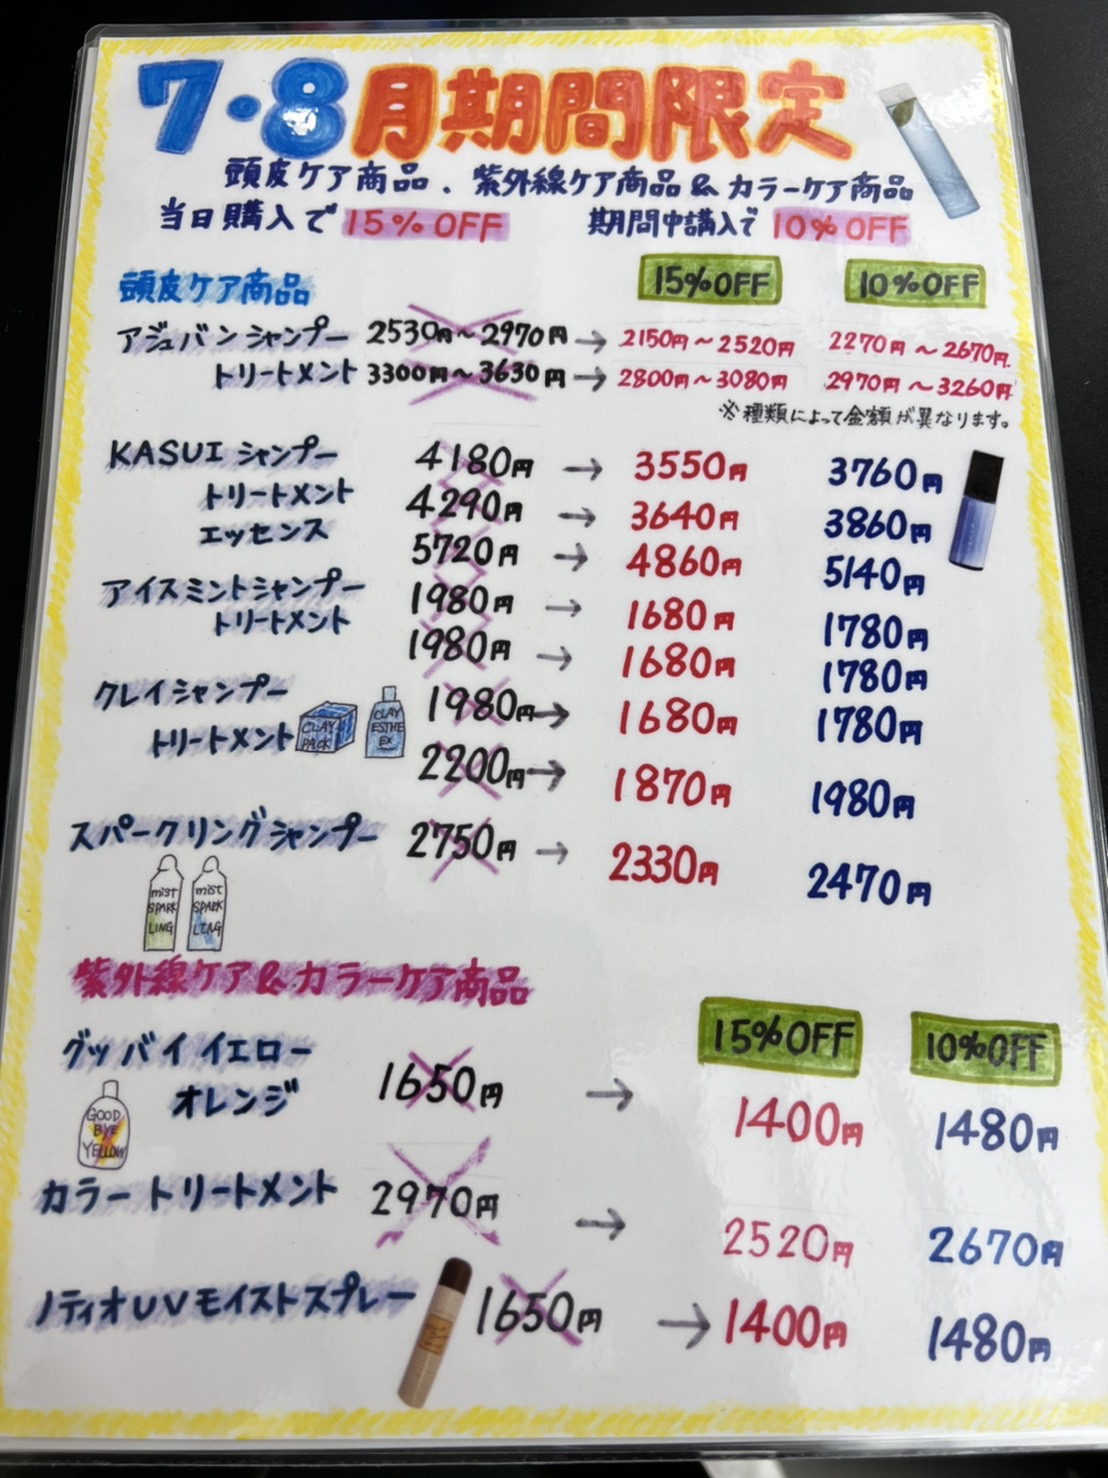 7・8月期間限定
頭皮ケア商品、紫外線ケア商品&カラーケア商品
当日購入で 15%OFF 期間中購入で 10%OFF
頭皮ケア商品 15%OFF 10%OFF
アジュバンシャンプー 2530円〜2970円 → 2150円〜2520円 2270円〜2670円
トリートメント 3300円〜3630円 → 2800円〜3080円 2970円〜3260円
※種類によって金額が異なります。
KASUI シャンプー 4180円 → 3550円 3760円
トリートメント 4290円 → 3640円 3860円
エッセンス 5720円 → 4860円 5140円
アイスミントシャンプー 1980円 → 1680円 1780円
トリートメント 1980円 → 1680円 1780円
クレイシャンプー 1980円 → 1680円 1780円
トリートメント 2200円 → 1870円 1980円
CLAY PACK
CLAY ESTHE EX
スパークリングシャンプー 2750円 → 2330円 2470円
mist SPARKLING
mist SPARKLING
紫外線ケア&カラーケア商品
15%OFF 10%OFF
グッバイイエロー
オレンジ 1650円 → 1400円 1480円
GOOD BYE YELLOW
カラートリートメント 2970円 → 2520円 2670円
ノティオUVモイストスプレー 1650円 → 1400円 1480円